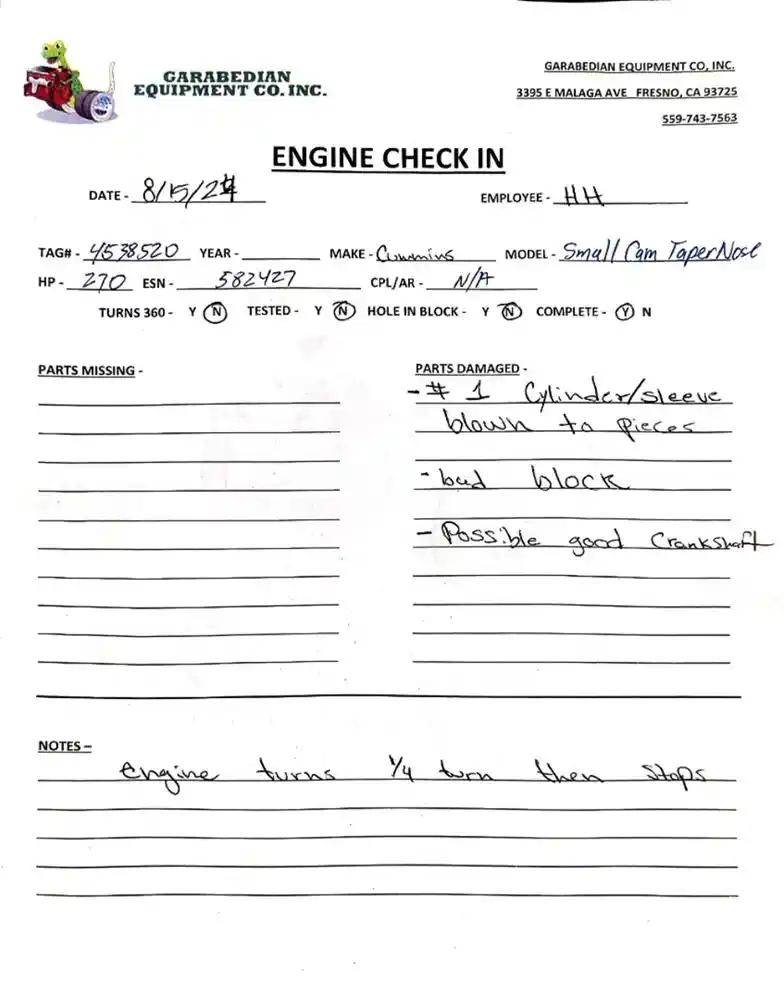 GARABEDIAN
EQUIPMENT CO. INC.
GARABEDIAN EQUIPMENT CO, INC.
3395 E MALAGA AVE FRESNO, CA 93725
559-743-7563
ENGINE CHECK IN
DATE - 8/15/24 EMPLOYEE - HH
TAG# - 4538520 YEAR - MAKE - Cummins MODEL - Small Cam Taper Nose
HP - 270 ESN - 582427 CPL/AR - N/A
TURNS 360 - Y N TESTED - Y N HOLE IN BLOCK - Y N COMPLETE - Y N
PARTS MISSING -
PARTS DAMAGED -
- # 1 Cylinder/sleeve
blown to pieces
- bad block
- Possible good Crankshaft
NOTES –
engine turns 1/4 turn then stops